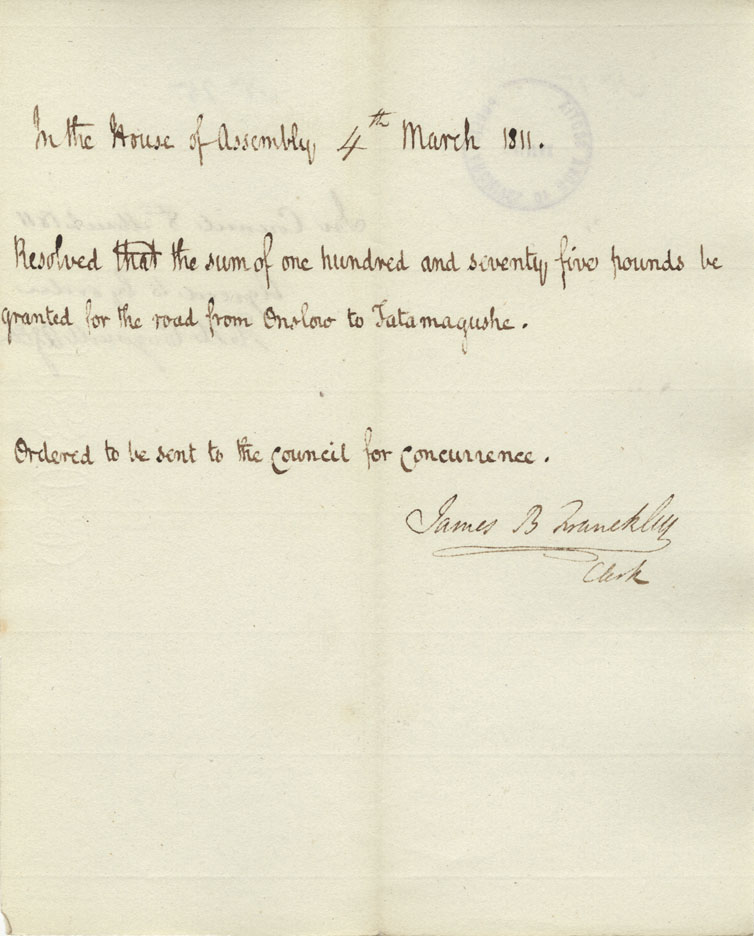 In the House of Assembly, 4th March 1811.
Resolved that the sum of one hundred and seventy five pounds be
granted for the road from Onslow to Tatamagushe.
Ordered to be sent to the Council for Concurrence.
James B Franckley
Clerk